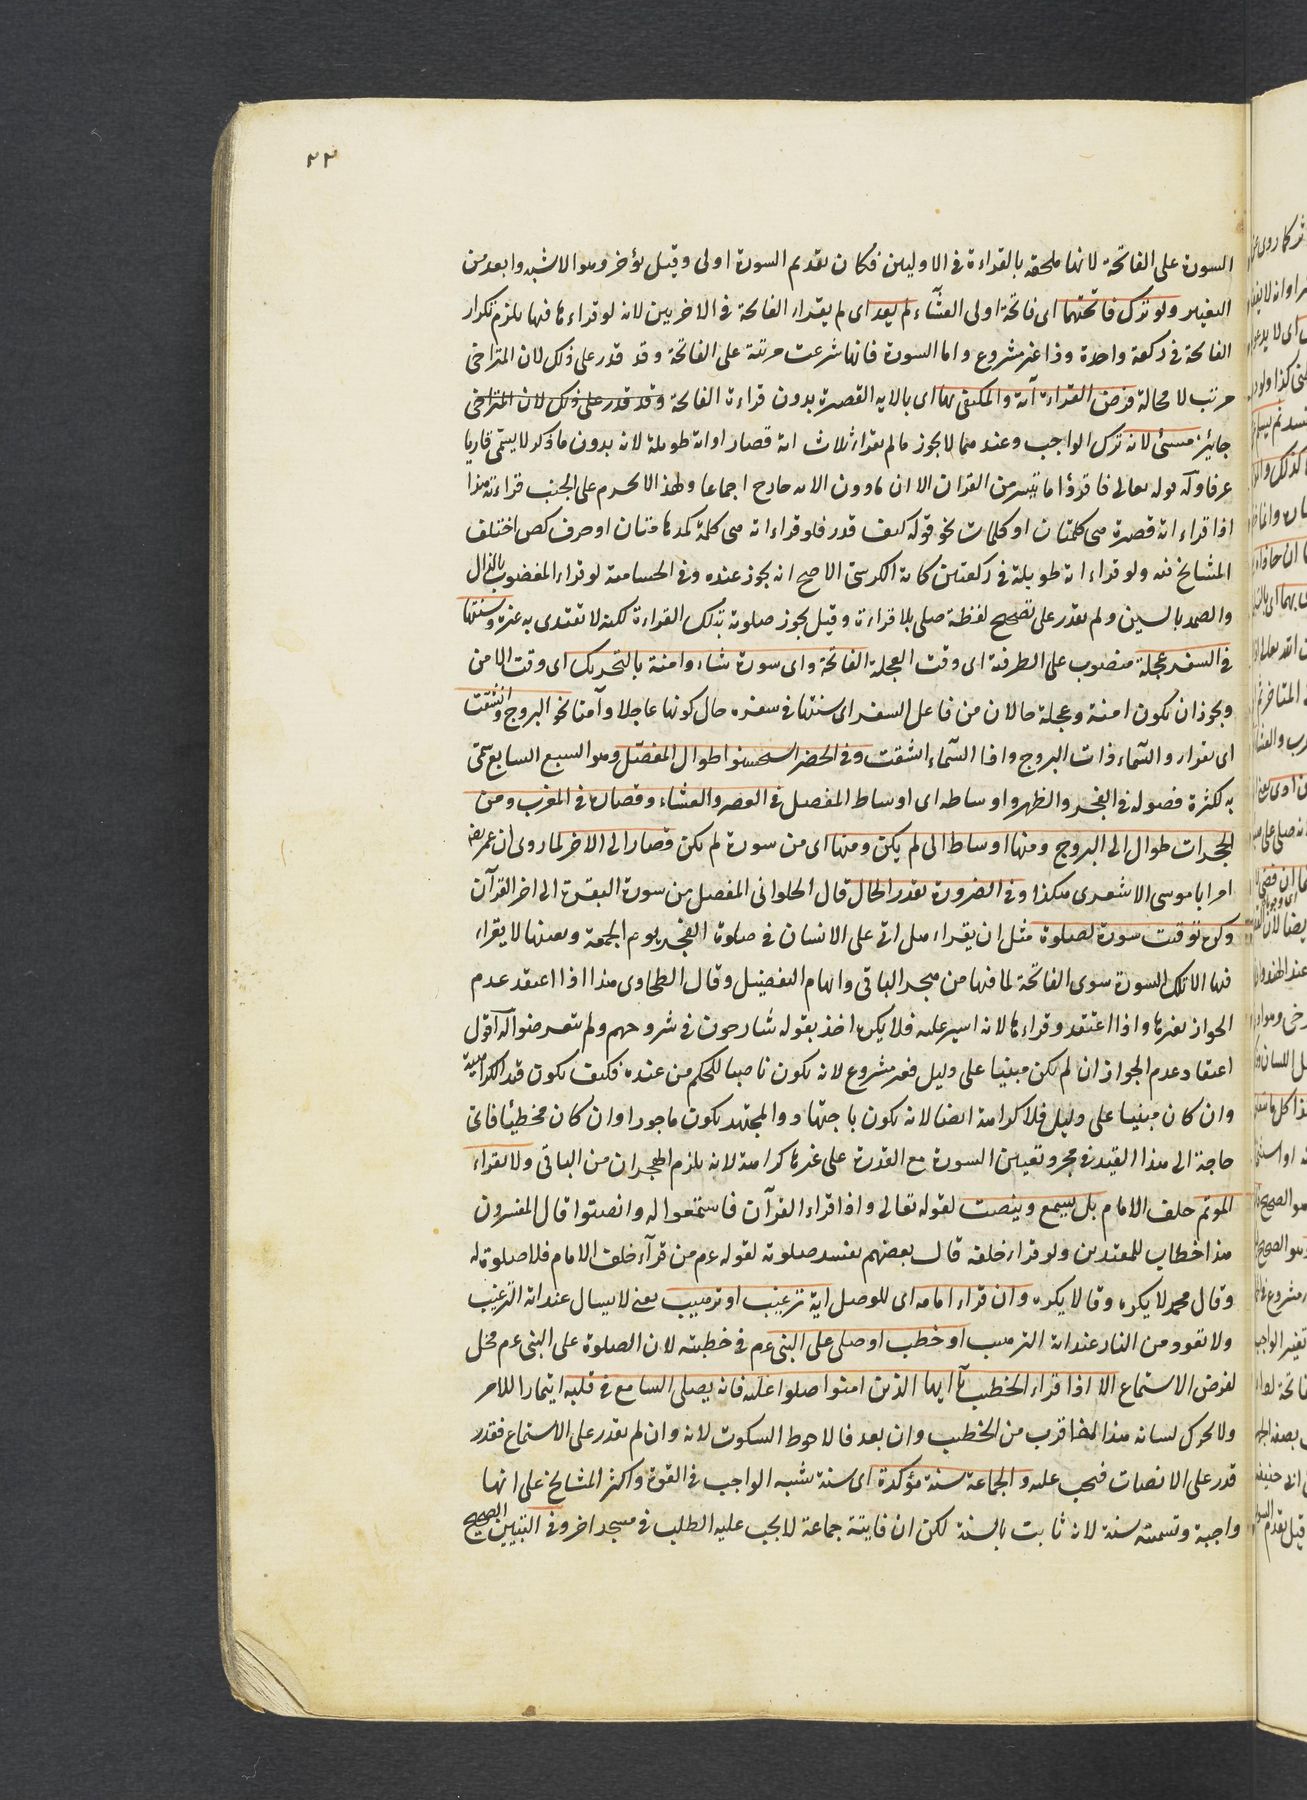 ٢٣
السورة على الفاتحة لانها ملحقة بالقراءة في الاوليين فكان تقديم السورة اولى وقيل يؤخر وهو الاشبه وابعد من
التغيير ولو ترك فاتحتهما اى فاتحة اولى العشاء لم يعد اى لم يقراء الفاتحة في الاخريين لانه لو قراءها فيها يلزم تكرار
الفاتحة في ركعة واحدة وذا غير مشروع واما السورة فانها شرعت مرتبة على الفاتحة وقد قدر على ذلك لان المتراخى
مرتب لا محالة فرض القراءة آية والمكتفى بها اى بالاية القصيرة بدون قراءة الفاتحة وقد قدر على ذلك لان المتراخى
جايز مسئ لانه ترك الواجب وعندهما لا يجوز ما لم يقراء ثلاث اية قصار او اية طويلة لانه بدون ما ذكر لا يسمى قاريا
عرفا وله قوله تعالى فاقرؤا ما تيسر من القران الا ان مادون الاية خارج اجماعا ولهذا لا يحرم على الجنب قراءته هذا
اذا قراء اية قصيرة هى كلمتان او كلمات نحو قوله كيف قدر فلو قراء اية هى كلمة كمدهامتان او حرف كص اختلف
المشايخ فيه ولو قراء اية طويلة في ركعتين كاية الكرسى الاصح انه يجوز عنده وفي الحسامية لو قراء المغضوب بالذال
والصمد بالسين ولم يقدر على تصحيح لفظة صلى بلا قراءة وقيل يجوز صلوته بتلك القراءة لكنه لا يقتدى به غيره وسنتها
في السفر عجلة منصوب على الظرفية اى وقت العجلة الفاتحة واى سورة شاء وامنة بالتحريك اى وقت الامن
ويجوز ان يكون امنة وعجلة حالان من فاعل السفر اى سنتها في سفره حال كونها عاجلا وآمنا نحو البروج وانشقت
اى يقراء والسماء ذات البروج واذا السماء انشقت وفي الحضر استحسنوا طوال المفصل وهو السبع السابع سمى
به لكثرة فصوله في الفجر والظهر واوساطه اى اوساط المفصل في العصر والعشاء وقصاره في المغرب ومن
الحجرات طوال الى البروج ومنها اوساط الى لم يكن ومنها اى من سورة لم يكن قصار الى الاخر لما روى ان عمر رضه
امر ابا موسى الاشعرى هكذا وفي الضرورة بقدر الحال قال الحلوانى المفصل من سورة البقرة الى اخر القرآن
وكره توقيت سورة لصلوة مثل ان يقراء هل اتى على الانسان في صلوة الفجر يوم الجمعة ويعينها لا يقراء
فيها الا تلك السورة سوى الفاتحة لما فيها من هجر الباقى وايهام التفضيل وقال الطحاوى هذا اذا اعتقد عدم
الجواز بغيرها واذا اعتقد وقراءها لانه ايسر عليه فلا يكره اخذ بقوله شارحون في شروحهم ولم يتعرضوا له اقول
اعتقاد عدم الجواز ان لم يكن مبنيا على دليل فغير مشروع لانه يكون ناصبا للحكم من عنده فكيف يكون قيد الكراهية
وان كان مبنيا على دليل فلا كراهة ايضا لانه يكون باجتهاد والمجتهد يكون ماجورا وان كان مخطيئا فاى
حاجة الى هذا القيد في مجرد تعيين السورة مع القدرة على غيرها كراهة لانه يلزم الهجران من الباقى ولا يقراء
المؤتم خلف الامام بل يسمع وينصت لقوله تعالى واذا قراء القرآن فاستمعوا له وانصتوا قال المفسرون
هذا خطاب للمقتدين ولو قراء خلفه قال بعضهم تفسد صلوته لقوله عم من قرآء خلف الامام فلا صلوة له
وقال محمد لا يكره وقالا يكره وان قراء امامه اى للوصل اية ترغيب او ترهيب يعنى لا يسال عند اية الترغيب
ولا تعوذ من النار عند اية الترهيب او خطب او صلى على النبى عم في خطبته لان الصلوة على النبى عم مخل
لفرض الاستماع الا اذا قراء الخطيب يآ ايها الذين امنوا صلوا عليه فانه يصلى السامع في قلبه ايتمارا للامر
ولا يحرك لسانه هذا اذا قرب من الخطيب وان بعد فالاحوط السكوت لانه وان لم يقدر على الاستماع فقدر
قدر على الانصات فيجب عليه والجماعة سنة مؤكدة اى سنة شبه الواجب في القوة واكثر المشايخ على انها
واجبة وتسميته سنة لانه ثابت بالسنة لكن ان فايتة جماعة لا يجب عليه الطلب في مسجد اخر وفي التبيين الصحيح